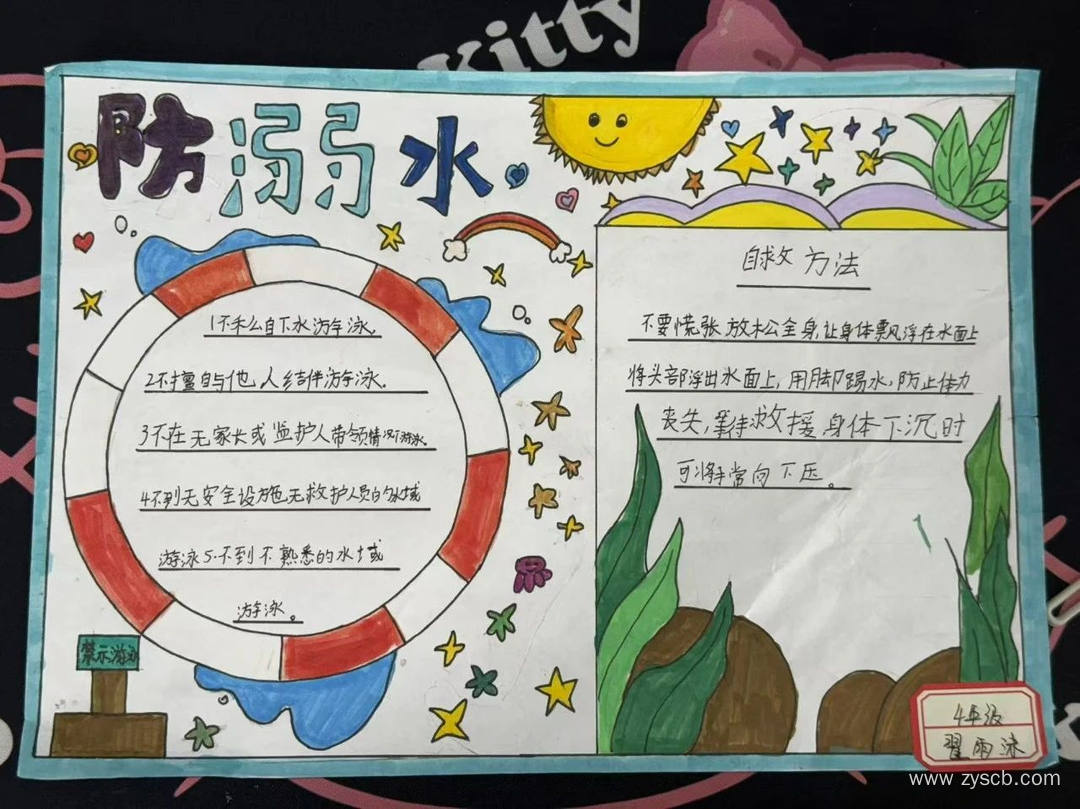 Kitty
防溺水
1不私自下水游泳
2不擅自与他人结伴游泳.
3不在无家长或监护人带领情况下游泳
4不到无安全设施无救护人员的水域
游泳5.不到不熟悉的水域
游泳。
禁示游泳
自救方法
不要慌张放松全身,让身体飘浮在水面上
将头部浮出水面上,用脚踢水,防止体力
丧失,等待救援身体下沉时
可将手掌向下压。
4年级
翟雨沫
www.zyscb.com